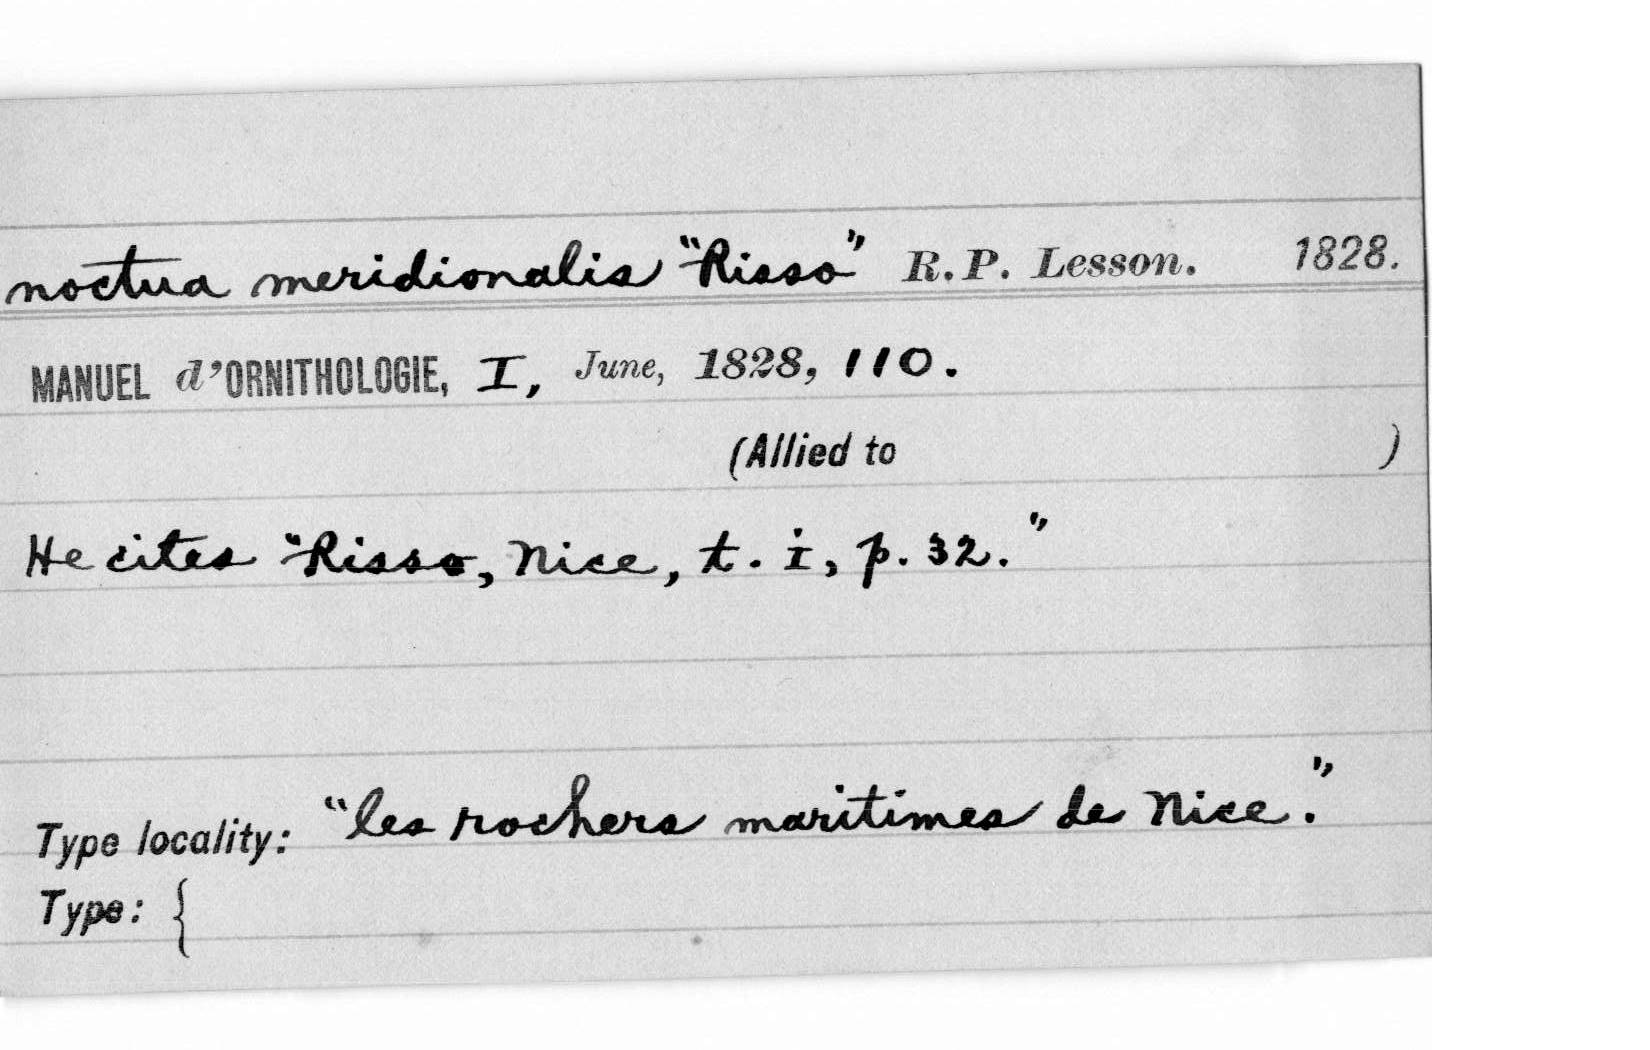 noctua meridionalis "Risso" R. P. Lesson. 1828.
MANUEL d'ORNITHOLOGIE, I, June, 1828, 110.
(Allied to )
He cites "Risso, Nice, t. i, p. 32."
Type locality: "les rochers maritimes de Nice."
Type: {